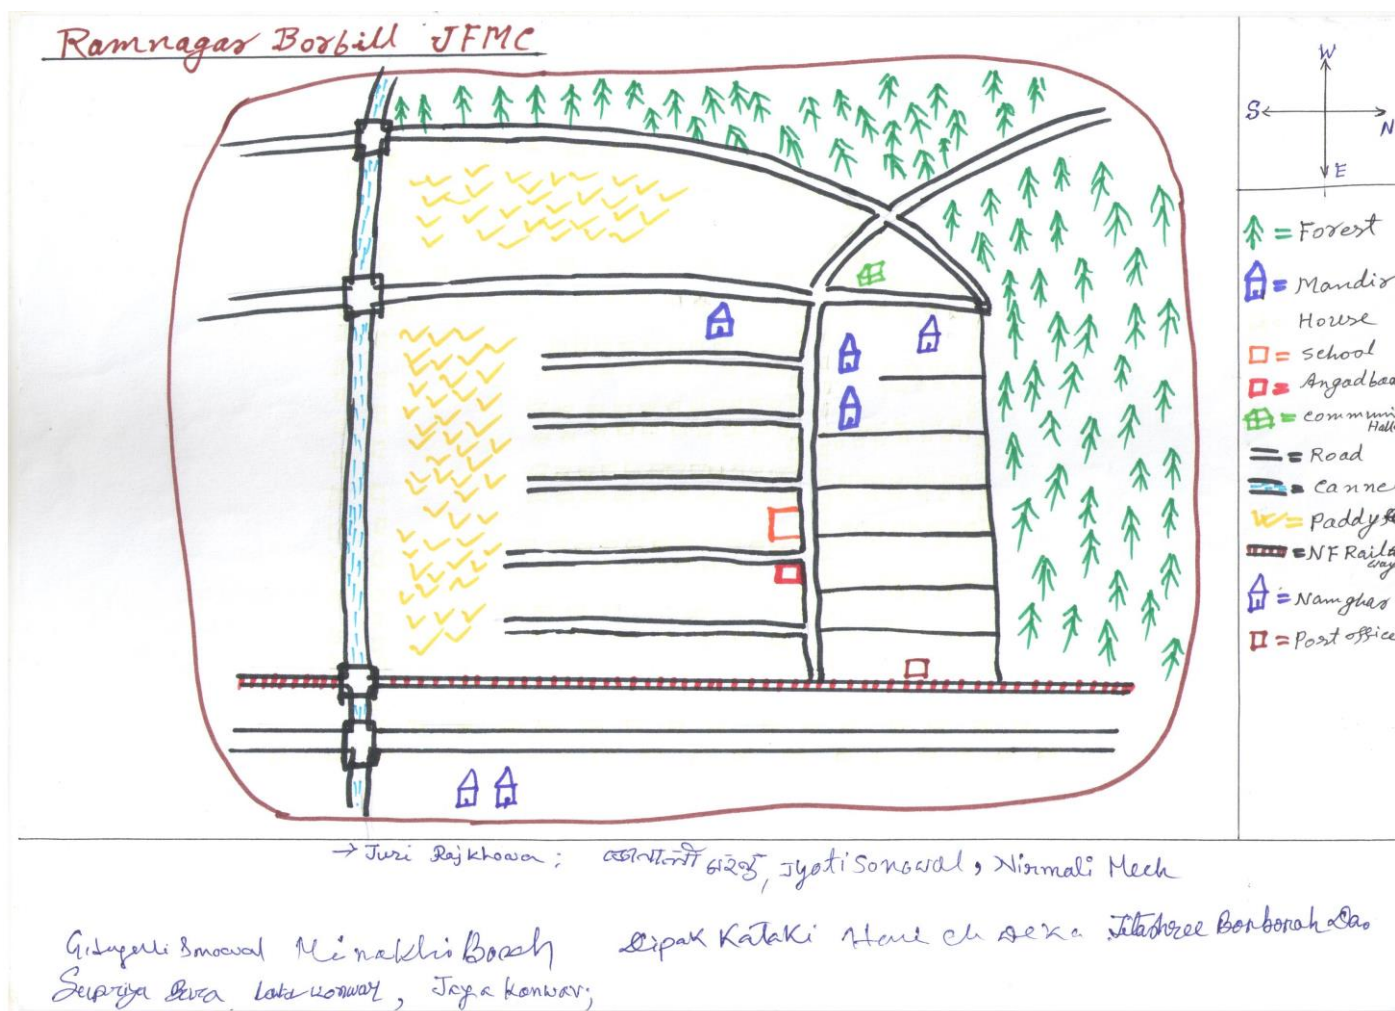 Ramnagar Borbill JFMC
W
S
N
E
= Forest
= Mandir
House
= School
= Angadbaa
= Communi
Hall
= Road
= Canne
= Paddy
= NF Rail
way
= Namghar
= Post office
→ Juri Rajkhowa; Jyoti Sonowal, Nirmali Mech
Minakhi Borah Dipak Kataki Hari ch Deka Jitashree Borborah Das
Supriya Bora, Lata Konwar, Jaya Konwar;